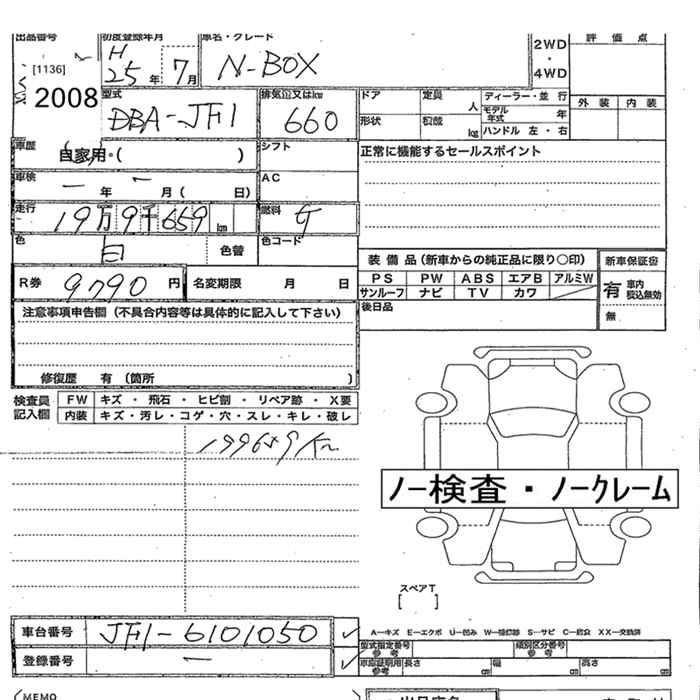 出品番号 初度登録年月 車名・グレード 評 価 点
[1136] H 25 年 7 月 N-BOX 2WD ・ 4WD
2008 型式 DBA-JF1 排気量又はkw 660 ドア 定員 人 ディーラー・並 行 外 装 内 装
形状 積載 kg モデル年式 年
ハンドル 左 ・ 右
車歴 自家用・( ) シフト 正常に機能するセールスポイント
車検 ー 年 ー 月 ( 日) AC
走行 19万9千659 km 燃料 ガ
色 白 色替 色コード
装 備 品 (新車からの純正品に限り〇印) 新車保証書
R券 9790 円 名変期限 月 日 PS PW ABS エアB アルミW 有 車内 税込無効
サンルーフ ナビ TV カワ
注意事項申告欄 (不具合内容等は具体的に記入して下さい) 後日品 無
修復歴 有 (箇所 )
検査員 記入欄 FW キズ ・ 飛石 ・ ヒビ割 ・ リペア跡 ・ X要
内装 キズ・汚レ・コゲ・穴・スレ・キレ・破レ
199659 Km
ノー検査・ノークレーム
スペアT
[ ]
車台番号 JF1-6101050
A—キズ E—エクボ U—凹み S—サビ
登録番号 ー
型式指定番号 参 考 類別区分番号 参 考
車庫証明用 参考 長さ cm 幅 cm 高さ cm
MEMO 出品店名